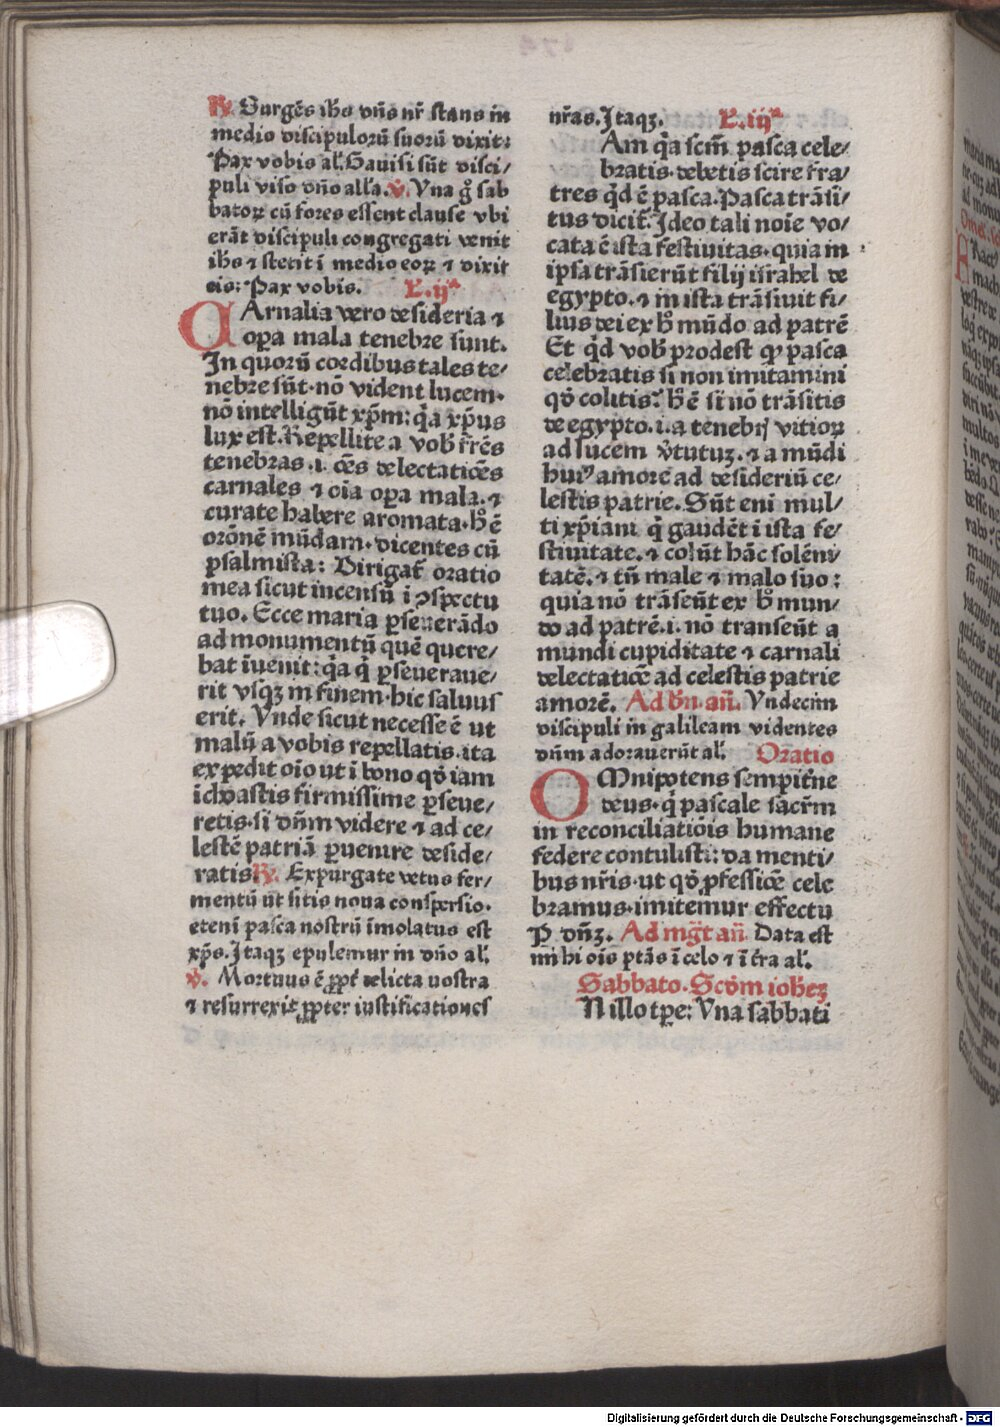 ℟. Surgēs ihs dn̄s nr̄ stans in
medio discipulorū suorū dixit:
Pax vobis al'. Gauisi sūt disci/
puli viso dn̄o alľa. ℣. Una g̊ sab
batoꝝ cū fores essent clause vbi
erāt discipuli congregati venit
ihs ⁊ stetit ī medio eoꝝ ⁊ dixit
eis: Pax vobis. L. ijª
CArnalia vero desideria ⁊
oꝑa mala tenebre sunt.
In quorū cordibus tales te/
nebre sūt. nō vident lucem.
nō intelligūt xp̄m: q̇a xp̄us
lux est. Repellite a vob̄ fr̄es
tenebras .i. oēs delectatiōes
carnales ⁊ oīa oꝑa mala. ⁊
curate habere aromata. h̄ ē
orōnē mūdam. dicentes cū
psalmista: Dirigat̄ oratio
mea sicut incensū ī ꝯspectu
tuo. Ecce maria ꝑseuerādo
ad monumentū quē quere/
bat īuenit: q̇a q̇ ꝑseueraue/
rit vsqꝫ in finem. hic saluus
erit. Unde sicut necesse ē ut
malū a vobis repellatis. ita
expedit oīo ut ī bono qd̄ iam
īchoastis firmissime ꝑseue/
retis. si dn̄m videre ⁊ ad ce/
lestē patriā ꝑuenire deside/
ratis ℟. Expurgate vetus fer/
mentū ut sitis noua conspersio.
etenī pasca nostrū īmolatus est
xp̄s. Itaqꝫ epulemur in dn̄o al'.
℣. Mortuus ē ꝓpt̄ delicta nostra
⁊ resurrexit ꝓpter iustificationes
nr̄as. Itaqꝫ. L. iijª
Am q̇a scm̄ pasca cele/
bratis. debetis scire fra/
tres qd̄ ē pasca. Pasca trāsi/
tus dicit̄. Ideo tali noīe vo/
cata ē ista festiuitas. quia in
ipsa trāsierūt filij israhel de
egypto. ⁊ in ista trāsiuit fi/
lius dei ex h̄ mūdo ad patrē
Et qd̄ vob̄ prodest ꝙ pasca
celebratis si non imitamini
qd̄ colitis? h̄ ē si nō trāsitis
de egypto .i. a tenebrꝭ vitioꝝ
ad lucem v̄tutuꝫ. ⁊ a mūdi
huiꝰ amore ad desideriū ce/
lestis patrie. Sūt eni mul/
ti xp̄iani q̇ gaudēt ī ista fe/
stiuitate. ⁊ colūt hāc solēni/
tatē. ⁊ tn̄ male ⁊ malo suo:
quia nō trāseūt ex h̄ mun/
do ad patrē .i. nō transeūt a
mundi cupiditate ⁊ carnali
delectatiōe ad celestis patrie
amorē. Ad bn̄. an̄. Undecim
discipuli in galileam videntes
dn̄m adorauerūt al'. Oratio
OMnipotens sempit̄ne
deus. q̇ pascale sacr̄m
in reconciliatiōis humane
federe contulisti: da menti/
bus nr̄is. ut qd̄ ꝓfessiōe cele
bramus. imitemur effectu
P dn̄ꝫ. Ad mḡt an̄ Data est
mihi oīs ptās ī celo ⁊ ī t̄ra al'.
Sabbato. Scdm̄ ioh̄eꝫ
N illo tꝑe: Una sabbati
Digitalisierung gefördert durch die Deutsche Forschungsgemeinschaft - DFG